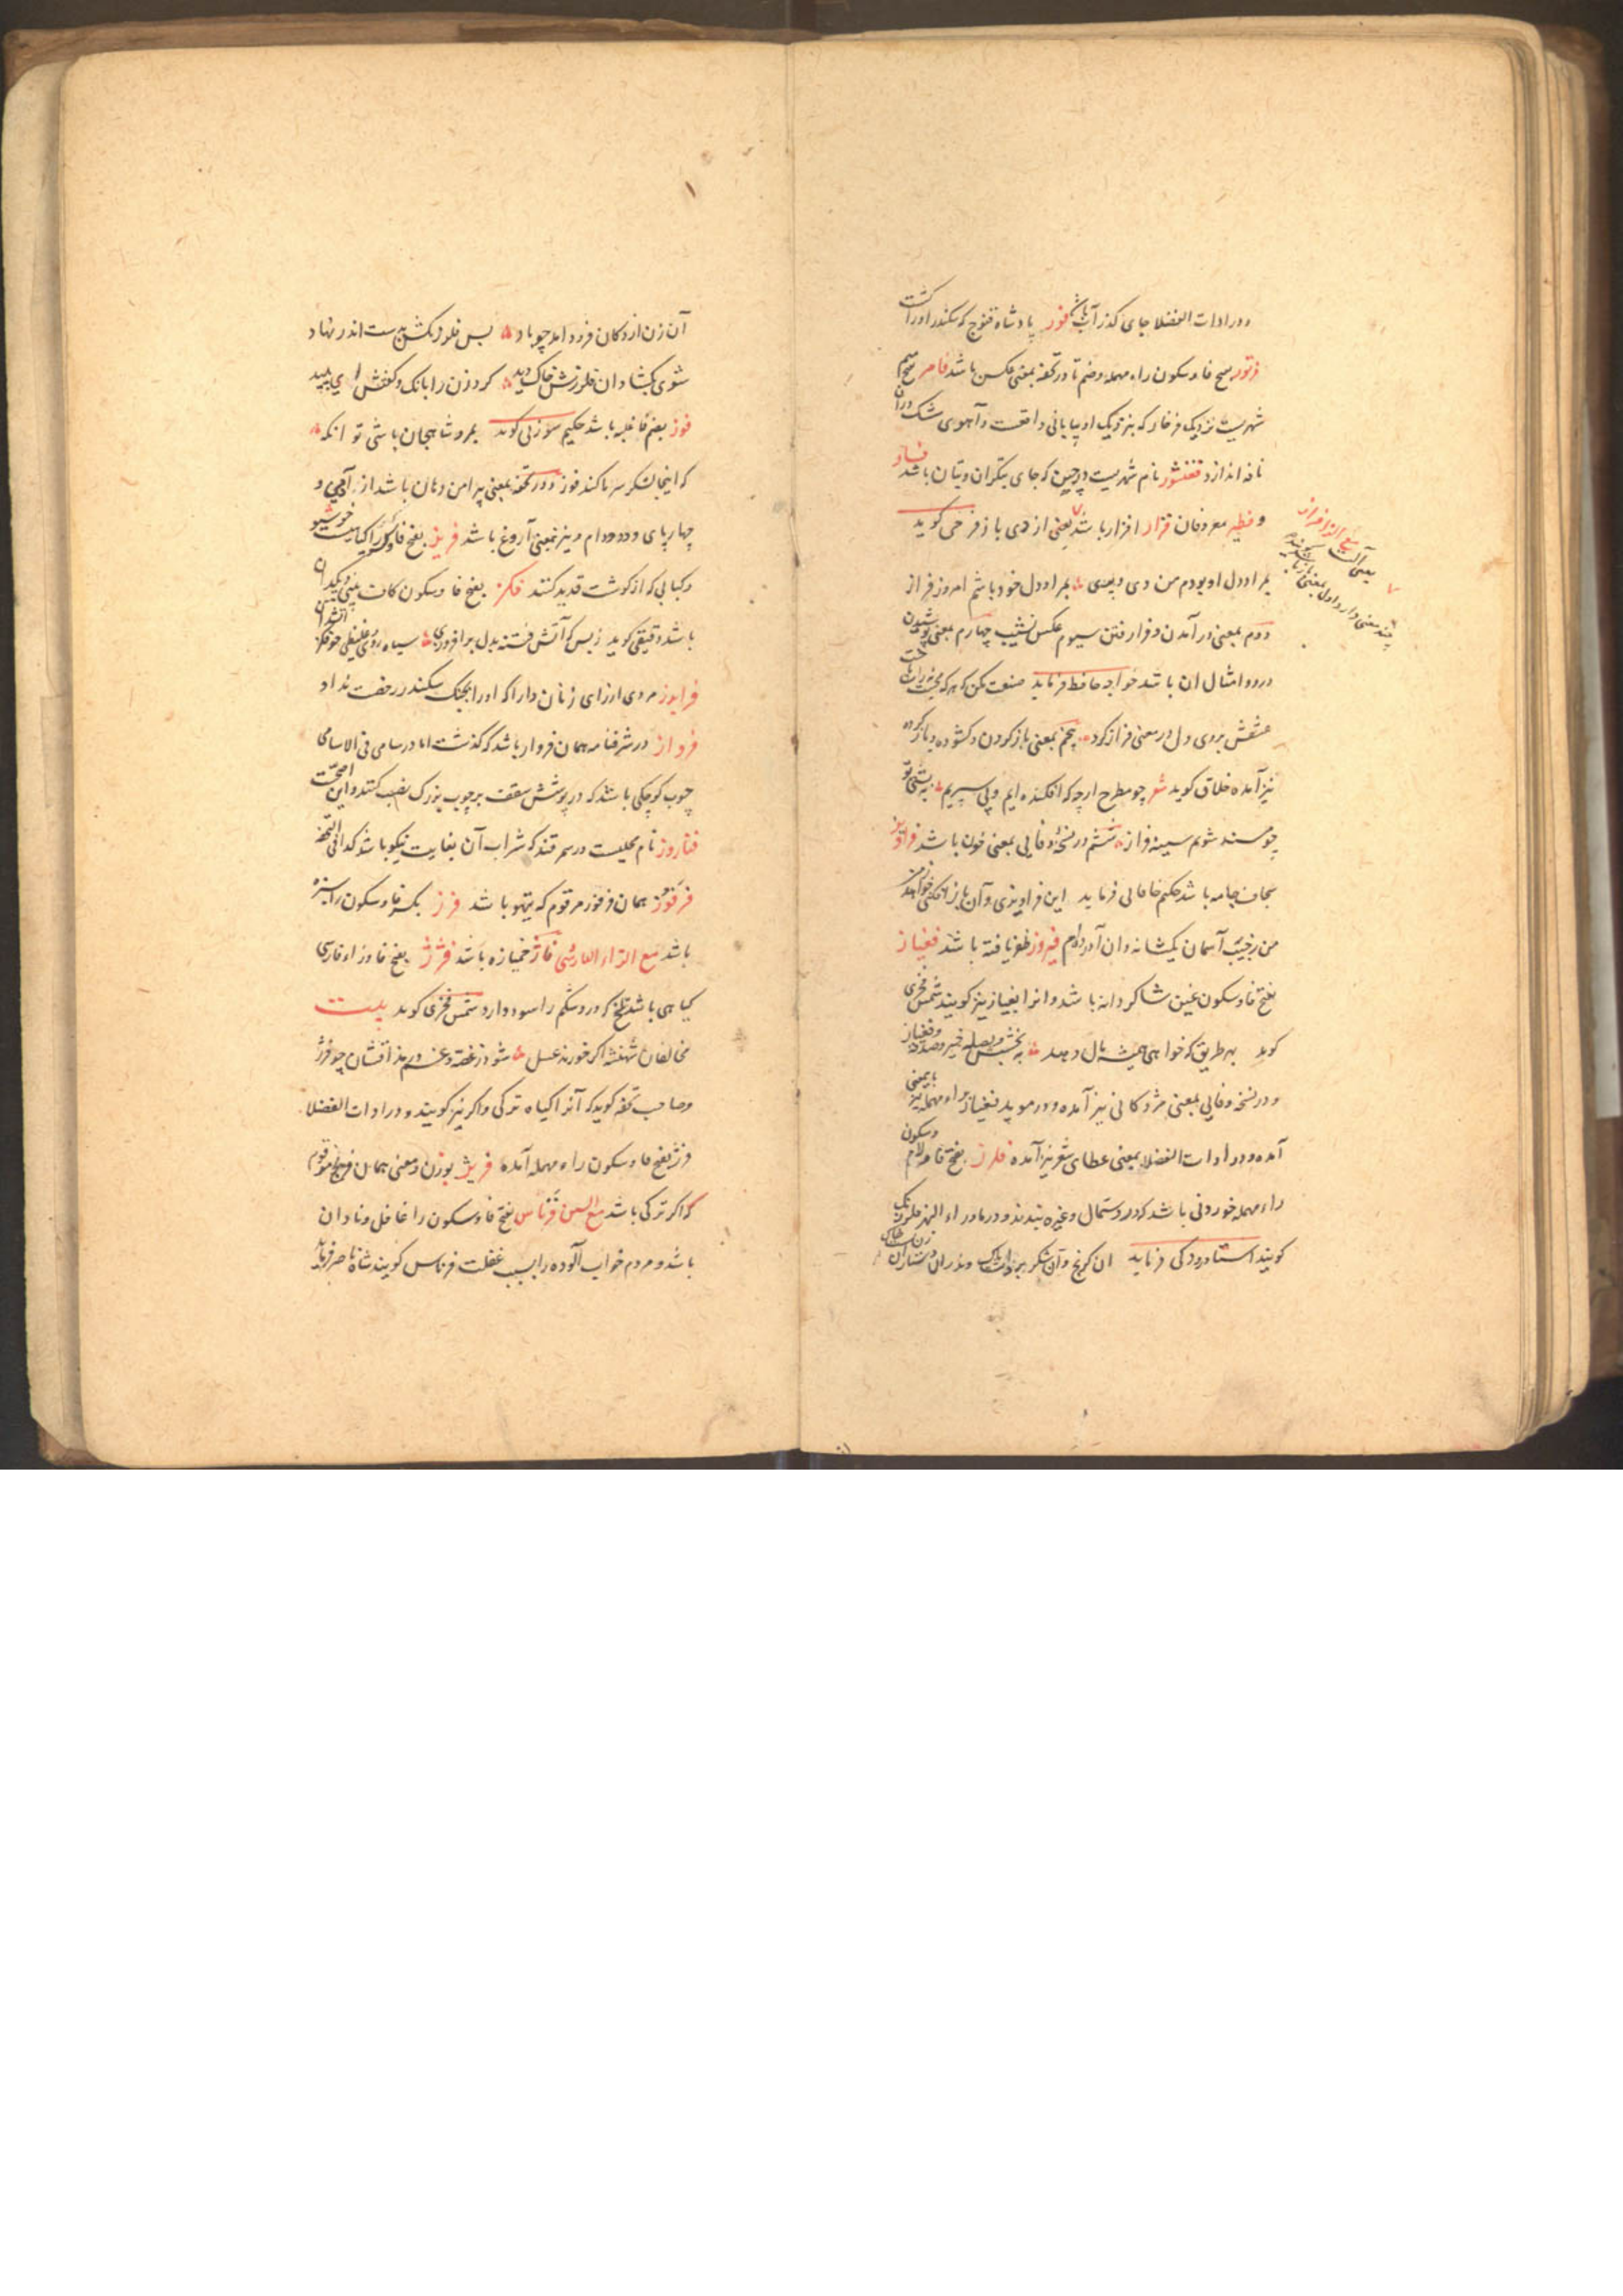 ودر ادات الفضلا جای گذر آب باشد فور پادشاه قنوج که سکندر اورا کشت
فرتور بفتح فا وسکون راء مهمله وضم تا در تحفه بمعنی عکس باشد فامر بفتح میم
شهریست نزدیک فرخار که بنزدیک او بیابانی واقعست وآهوی مشک دران
نافه اندازد فغنشور نام شهریست در چین که جای بتکران وبتان باشد فساو
وفطیر معروفان فراز افزار باشد یعنی از دی باز فرخی گوید
مع الزا فراز
چند معنی دارد اول بمعنی
بمراد دل او بودم من دی وپری بمراد دل خود باشم امروز فراز
دوم بمعنی در آمدن وفرا رفتن سیوم عکس نشیب چهارم بمعنی پوشیدن
در وامثال ان باشد خواجه حافظ فرماید صنعت مکن که هر که محبت نه راست باخت
عشقش بروی دل در معنی فراز کرد پنجم بمعنی باز کردن وکشوده وباز کرده
نیز آمده خلاق گوید شعر چو مطرح ارچه که افکنده ایم وپی سپریم به پشتی تو
چو مسند شویم سینه فراز ششم در نسخه وفایی بمعنی خون باشد فراویز
سجاف جامه باشد حکیم خاقانی فرماید این فراویزی وآن باز افکنی خواهد ز من
من ز جیب آسمان یکشانه دان آورده ام فیروز ظفر یافته باشد فغیاز
بفتح فا وسکون غین شاگردانه باشد وانرا بغیاز نیز گویند شمس فخری
گوید بهر طریق که خواهی همیشه مال دهد به بخشش وبصله خیر وصدقه وفغیاز
ودر نسخه وفایی بمعنی مژدگانی نیز آمده ودر موید فغیار براء مهمله نیز بایمعنی
آمده ودر ادات الفضلا بمعنی عطای شعر نیز آمده فلرز بفتح فا ولام وسکون
راء مهمله خوردنی باشد که در دستمال وغیره بندند ودر ماوراء النهر فلرزنک
گویند استاد رودکی فرماید ان کرنج وآن شکر برداشت پاک وندران دستار آن زن بست خاک
آن زن از دکان فرود امد چو باد پس فلرزنکش بدست اندر نهاد
شوی بکشاد ان فلرزش خاک دید کرد زن را بانک وگفتش ای پلید
فوز بضم فا غلبه باشد حکیم سوزنی گوید بمرو شاهجان باشی تو انکه
که اینجا لشکر سرما کند فوز ودر تحفه بمعنی پیرامن دهان باشد از آدمی و
چهارپای ودد ودام ونیز بمعنی آروغ باشد فریز بفتح فا وکسر را گیاهیست خوشبو
وکبابی که از گوشت قدید کنند فکز بفتح فا وسکون کاف
باشد دقیقی گوید ز بس که آتش فتنه بدل برافروزی سیاه روی غلیظی چو فکز آتشدان
فرایوز مردی از رای زنان دارا که اورا بجنک سکندر رخصت نداد
فرداز در شرفنامه همان فروار باشد که گذشت اما در سامی فی الاسامی
چوب کوچکی باشد که در پوشش سقف بر چوب بزرک نصب کنند واین اصحست
فناروز نام محلیست در سمرقند که شراب آن بغایت نیکو باشد کذا فی التحفه
فرفوز همان فرفور مرقوم که تیهو باشد فرز بکسر فا وسکون را سبزه
باشد مع الزاء الفارسی فاژ خمیازه باشد فرژ بفتح فا وزاء فارسی
گیاهی باشد تلخ که درد شکم را سود دارد شمس فخری گوید بیت
مخالفان شهنشه اکر خورند عسل شود ز غصه وغم در مذاقشان چو فرژ
وصاحب تحفه گوید که آنرا گیاه ترکی واکر نیز گویند ودر ادات الفضلا
فرژ بفتح فا وسکون راء مهمله آمده فریژ بوزن ومعنی همان فریز مرقوم
که اکر ترکی باشد مع السین فرناس بفتح فا وسکون را غافل ونادان
باشد ومردم خواب آلوده را بسبب غفلت فرناس گویند شاه ناصر فرماید